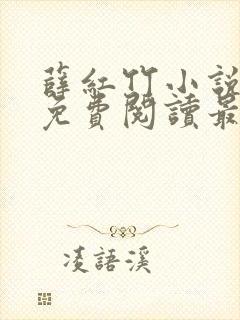 薛紅竹小說
免費閱讀最
凌語溪